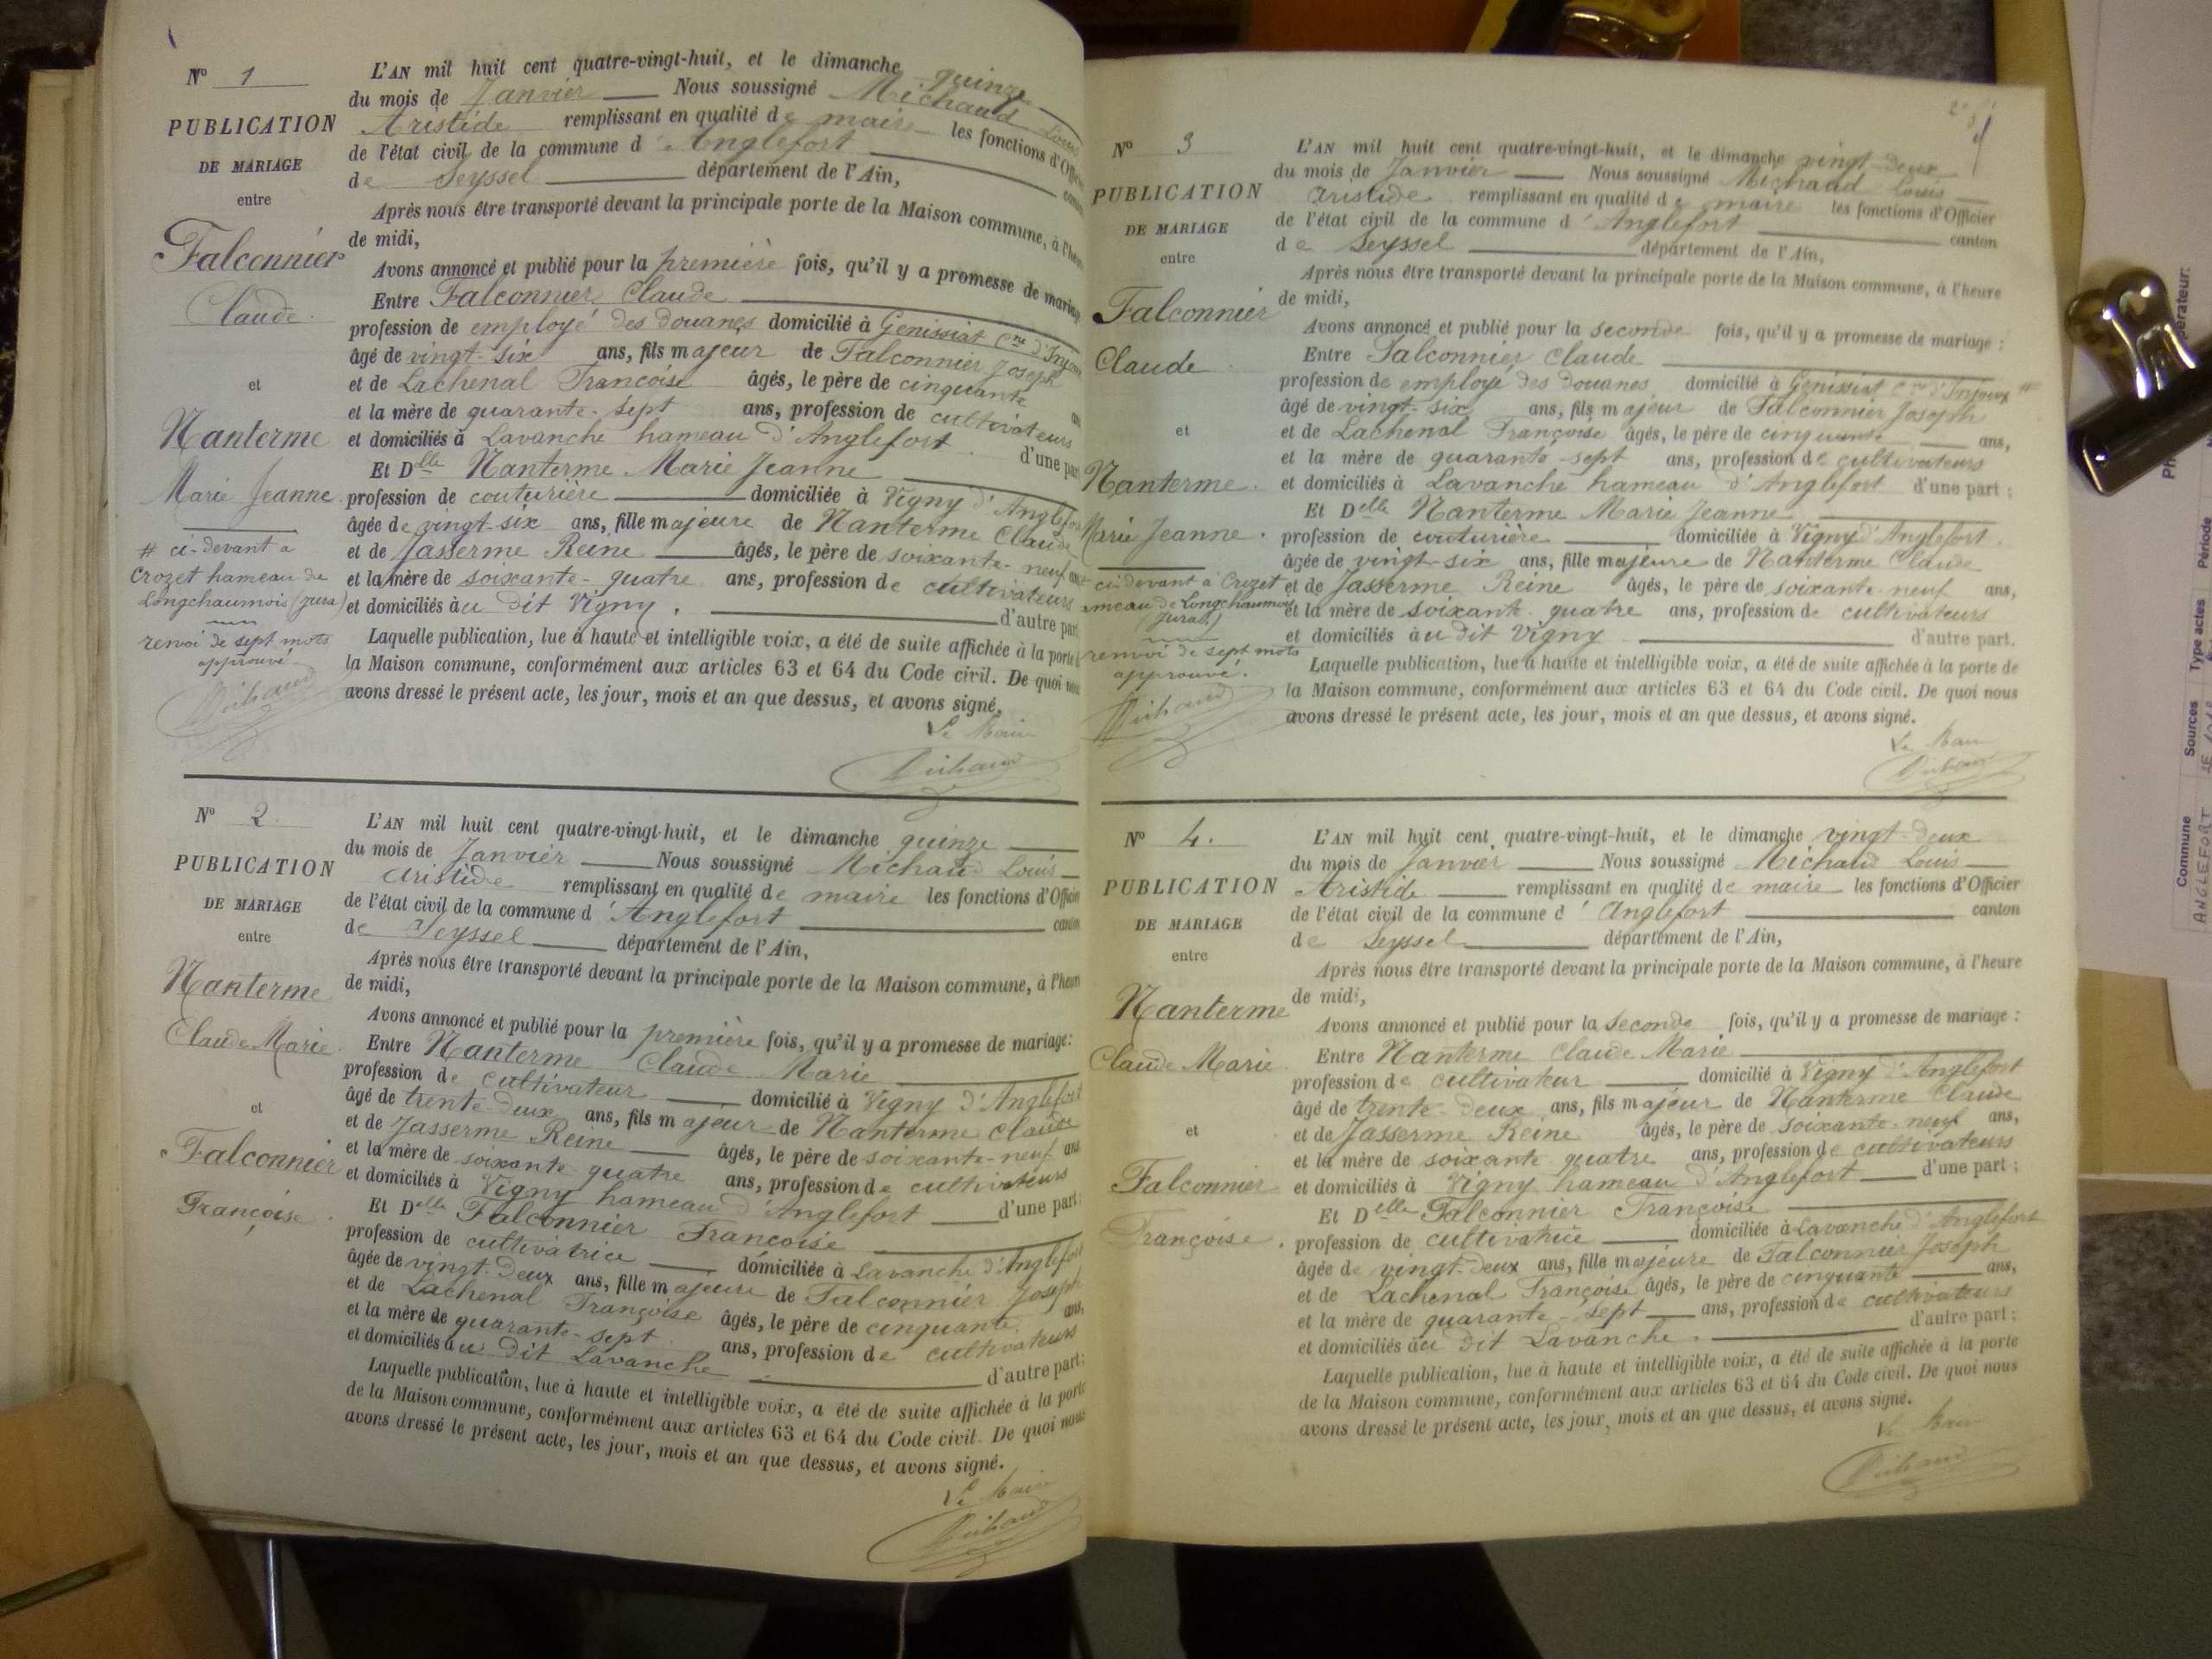 Nº 1
PUBLICATION
DE MARIAGE
entre
Falconnier
Claude.
et
Nanterme
Marie Jeanne.
# ci-devant à
Crozet hameau de
Longchaumois (Jura)
renvoi de sept mots
approuvé.
Michaud
L'AN mil huit cent quatre-vingt-huit, et le dimanche quinze
du mois de Janvier Nous soussigné Michaud Louis
Aristide remplissant en qualité de maire les fonctions d'Officier
de l'état civil de la commune d'Anglefort canton
de Seyssel département de l'Ain,
Après nous être transporté devant la principale porte de la Maison commune, à l'heure
de midi,
Avons annoncé et publié pour la première fois, qu'il y a promesse de mariage
Entre Falconnier Claude
profession de employé des douanes domicilié à Genissiat Cne d'Injoux
âgé de vingt-six ans, fils majeur de Falconnier Joseph
et de Lachenal Françoise âgés, le père de cinquante ans
et la mère de quarante-sept ans, profession de cultivateurs
et domiciliés à Lavanche hameau d'Anglefort d'une part
Et Delle Nanterme Marie Jeanne
profession de couturière domiciliée à Vigny d'Anglefort
âgée de vingt-six ans, fille majeure de Nanterme Claude
et de Jasserme Reine âgés, le père de soixante-neuf ans
et la mère de soixante-quatre ans, profession de cultivateurs
et domiciliés àu dit Vigny. d'autre part
Laquelle publication, lue à haute et intelligible voix, a été de suite affichée à la porte de
la Maison commune, conformément aux articles 63 et 64 du Code civil. De quoi nous
avons dressé le présent acte, les jour, mois et an que dessus, et avons signé.
Le Maire
Michaud
Nº 2
PUBLICATION
DE MARIAGE
entre
Nanterme
Claude Marie
et
Falconnier
Françoise.
L'AN mil huit cent quatre-vingt-huit, et le dimanche quinze
du mois de Janvier Nous soussigné Michaud Louis
Aristide remplissant en qualité de maire les fonctions d'Officier
de l'état civil de la commune d'Anglefort canton
de Seyssel département de l'Ain,
Après nous être transporté devant la principale porte de la Maison commune, à l'heure
de midi,
Avons annoncé et publié pour la première fois, qu'il y a promesse de mariage:
Entre Nanterme Claude Marie
profession de cultivateur domicilié à Vigny d'Anglefort
âgé de trente-deux ans, fils majeur de Nanterme Claude
et de Jasserme Reine âgés, le père de soixante-neuf ans
et la mère de soixante quatre ans, profession de cultivateurs
et domiciliés à Vigny hameau d'Anglefort d'une part;
Et Delle Falconnier Françoise
profession de cultivatrice domiciliée à Lavanche d'Anglefort
âgée de vingt-deux ans, fille majeure de Falconnier Joseph
et de Lachenal Françoise âgés, le père de cinquante ans,
et la mère de quarante-sept ans, profession de cultivateurs
et domiciliés àu dit Lavanche d'autre part;
Laquelle publication, lue à haute et intelligible voix, a été de suite affichée à la porte
de la Maison commune, conformément aux articles 63 et 64 du Code civil. De quoi nous
avons dressé le présent acte, les jour, mois et an que dessus, et avons signé.
Le Maire
Michaud
Nº 3
PUBLICATION
DE MARIAGE
entre
Falconnier
Claude
et
Nanterme.
Marie Jeanne.
ci-devant à Crozet
hameau de Longchaumois
(Jura)
renvoi de sept mots
approuvé.
Michaud
L'AN mil huit cent quatre-vingt-huit, et le dimanche vingt-deux
du mois de Janvier Nous soussigné Michaud Louis
Aristide remplissant en qualité de maire les fonctions d'Officier
de l'état civil de la commune d'Anglefort canton
de Seyssel département de l'Ain,
Après nous être transporté devant la principale porte de la Maison commune, à l'heure
de midi,
Avons annoncé et publié pour la seconde fois, qu'il y a promesse de mariage :
Entre Falconnier Claude
profession de employé des douanes domicilié à Génissiat Cne d'Injoux #
âgé de vingt-six ans, fils majeur de Falconnier Joseph
et de Lachenal Françoise âgés, le père de cinquante ans,
et la mère de quarante-sept ans, profession de cultivateurs
et domiciliés à Lavanche hameau d'Anglefort d'une part ;
Et Delle Nanterme Marie Jeanne
profession de couturière domiciliée à Vigny d'Anglefort.
âgée de vingt-six ans, fille majeure de Nanterme Claude
et de Jasserme Reine âgés, le père de soixante-neuf ans,
et la mère de soixante-quatre ans, profession de cultivateurs
et domiciliés àu dit Vigny d'autre part.
Laquelle publication, lue à haute et intelligible voix, a été de suite affichée à la porte de
la Maison commune, conformément aux articles 63 et 64 du Code civil. De quoi nous
avons dressé le présent acte, les jour, mois et an que dessus, et avons signé.
Le Maire
Michaud
Nº 4.
PUBLICATION
DE MARIAGE
entre
Nanterme
Claude Marie.
et
Falconnier
Françoise.
L'AN mil huit cent quatre-vingt-huit, et le dimanche vingt-deux
du mois de Janvier Nous soussigné Michaud Louis
Aristide remplissant en qualité de maire les fonctions d'Officier
de l'état civil de la commune d'Anglefort canton
de Seyssel département de l'Ain,
Après nous être transporté devant la principale porte de la Maison commune, à l'heure
de midi,
Avons annoncé et publié pour la seconde fois, qu'il y a promesse de mariage :
Entre Nanterme Claude Marie
profession de cultivateur domicilié à Vigny d'Anglefort
âgé de trente-deux ans, fils majeur de Nanterme Claude
et de Jasserme Reine âgés, le père de soixante-neuf ans,
et la mère de soixante quatre ans, profession de cultivateurs
et domiciliés à Vigny hameau d'Anglefort d'une part ;
Et Delle Falconnier Françoise
profession de cultivatrice domiciliée à Lavanche d'Anglefort
âgée de vingt-deux ans, fille majeure de Falconnier Joseph
et de Lachenal Françoise âgés, le père de cinquante ans,
et la mère de quarante-sept ans, profession de cultivateurs
et domiciliés àu dit Lavanche. d'autre part ;
Laquelle publication, lue à haute et intelligible voix, a été de suite affichée à la porte
de la Maison commune, conformément aux articles 63 et 64 du Code civil. De quoi nous
avons dressé le présent acte, les jour, mois et an que dessus, et avons signé.
Le Maire
Michaud
Commune
Sources
Type actes
Période
ANGLEFORT